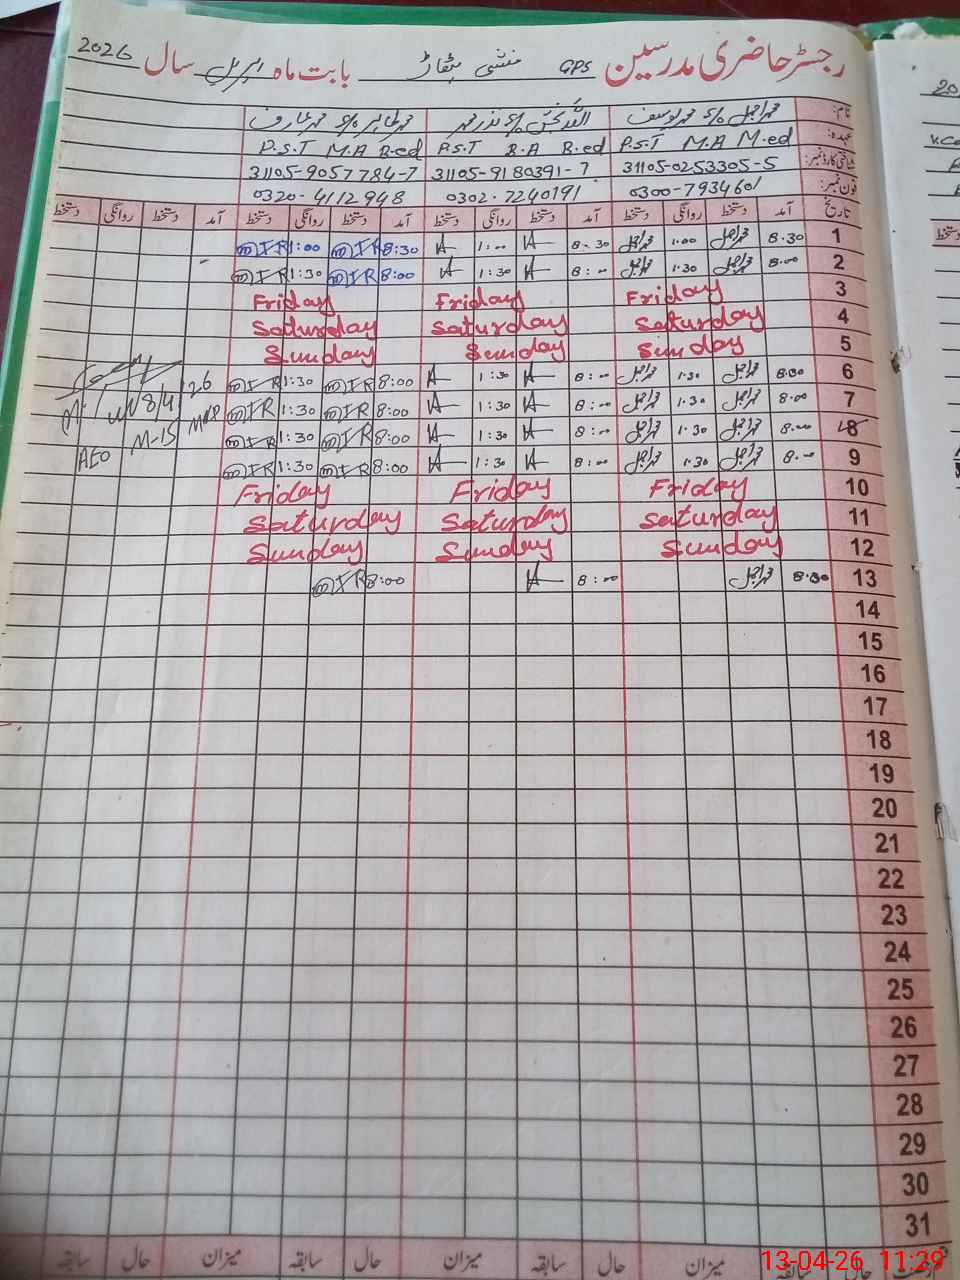 رجسٹر حاضری مدرسین GPS منشی بابت ماہ اپریل سال 2026
نام: محمد اجمل s/o محمد یوسف اللہ بخش s/o نذر محمد محمد طاہر s/o محمد عارف
عہدہ: P.S.T M.A M.ed P.S.T B.A B.ed P.S.T M.A B.ed
شناختی کارڈ نمبر: 31105-0253305-5 31105-9180391-7 31105-9057784-7
فون نمبر: 0300-7934601 0302-7240191 0320-4112948
تاریخ آمد دستخط روانگی دستخط آمد دستخط روانگی دستخط آمد دستخط روانگی دستخط آمد دستخط روانگی دستخط
1 8.30 محمد اجمل 1.00 محمد اجمل 8.30 A 1:00 A 8:30 MTR 1:00 MTR
2 8.00 محمد اجمل 1.30 محمد اجمل 8:00 A 1:30 A 8:00 MTR 1:30 MTR
3 Friday Friday Friday
4 Saturday Saturday Saturday
5 Sunday Sunday Sunday
6 8.00 محمد اجمل 1.30 محمد اجمل 8:00 A 1:30 A 8:00 MTR 1:30 MTR
7 8.00 محمد اجمل 1.30 محمد اجمل 8:00 A 1:30 A 8:00 MTR 1:30 MTR
8 8.00 محمد اجمل 1.30 محمد اجمل 8:00 A 1:30 A 8:00 MTR 1:30 MTR
9 8.00 محمد اجمل 1.30 محمد اجمل 8:00 A 1:30 A 8:00 MTR 1:30 MTR
8/4/26
M-15
AEO
10 Friday Friday Friday
11 Saturday Saturday Saturday
12 Sunday Sunday Sunday
13 8.00 محمد اجمل 8:00 A 8:00 MTR
14
15
16
17
18
19
20
21
22
23
24
25
26
27
28
29
30
31
حال سابقہ میزان حال سابقہ میزان حال سابقہ میزان حال سابقہ
13-04-26 11:29